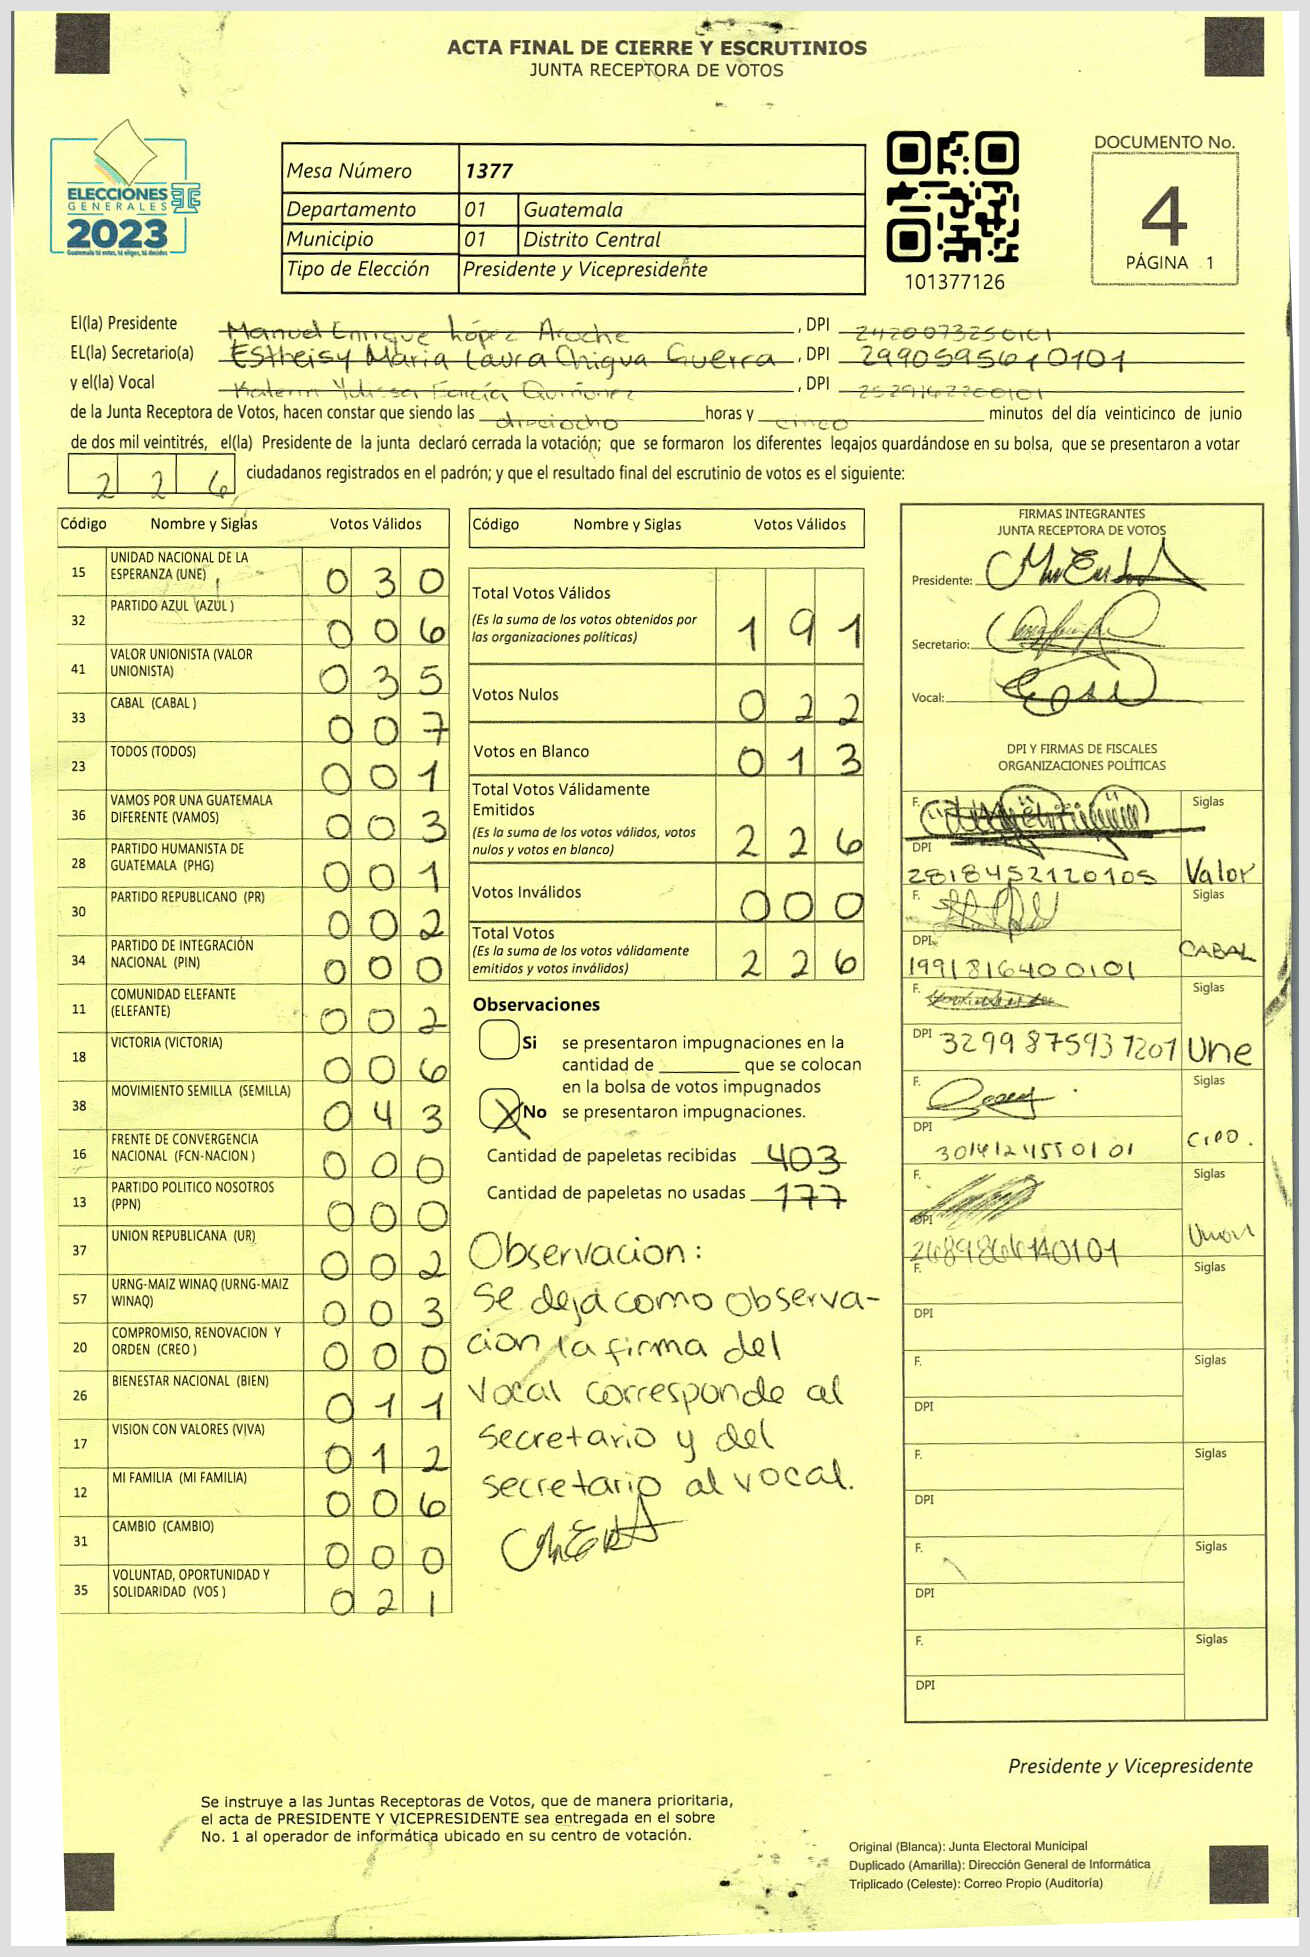 ACTA FINAL DE CIERRE Y ESCRUTINIOS
JUNTA RECEPTORA DE VOTOS
ELECCIONES
GENERALES
2023
Guatemala tú votas, tú eliges, tú decides
Mesa Número 1377
Departamento 01 Guatemala
Municipio 01 Distrito Central
Tipo de Elección Presidente y Vicepresidente
101377126
DOCUMENTO No.
4
PÁGINA 1
El(la) Presidente Manuel Enrique López Aroche, DPI 2420073250101
EL(la) Secretario(a) Estheisy Maria Laura Chigua Guerra, DPI 2990595610101
y el(la) Vocal Katerin Yulissa García Quiñonez, DPI 2529162200101
de la Junta Receptora de Votos, hacen constar que siendo las dieciocho horas y cinco minutos del día veinticinco de junio
de dos mil veintitrés, el(la) Presidente de la junta declaró cerrada la votación; que se formaron los diferentes legajos guardándose en su bolsa, que se presentaron a votar
226 ciudadanos registrados en el padrón; y que el resultado final del escrutinio de votos es el siguiente:
Código Nombre y Siglas Votos Válidos
15 UNIDAD NACIONAL DE LA ESPERANZA (UNE) 030
32 PARTIDO AZUL (AZUL ) 006
41 VALOR UNIONISTA (VALOR UNIONISTA) 035
33 CABAL (CABAL ) 007
23 TODOS (TODOS) 001
36 VAMOS POR UNA GUATEMALA DIFERENTE (VAMOS) 003
28 PARTIDO HUMANISTA DE GUATEMALA (PHG) 001
30 PARTIDO REPUBLICANO (PR) 002
34 PARTIDO DE INTEGRACIÓN NACIONAL (PIN) 000
11 COMUNIDAD ELEFANTE (ELEFANTE) 002
18 VICTORIA (VICTORIA) 006
38 MOVIMIENTO SEMILLA (SEMILLA) 043
16 FRENTE DE CONVERGENCIA NACIONAL (FCN-NACION ) 000
13 PARTIDO POLITICO NOSOTROS (PPN) 000
37 UNION REPUBLICANA (UR) 002
57 URNG-MAIZ WINAQ (URNG-MAIZ WINAQ) 003
20 COMPROMISO, RENOVACION Y ORDEN (CREO ) 000
26 BIENESTAR NACIONAL (BIEN) 011
17 VISION CON VALORES (VIVA) 012
12 MI FAMILIA (MI FAMILIA) 006
31 CAMBIO (CAMBIO) 000
35 VOLUNTAD, OPORTUNIDAD Y SOLIDARIDAD (VOS ) 021
Código Nombre y Siglas Votos Válidos
Total Votos Válidos 191
(Es la suma de los votos obtenidos por
las organizaciones políticas)
Votos Nulos 022
Votos en Blanco 013
Total Votos Válidamente
Emitidos 226
(Es la suma de los votos válidos, votos
nulos y votos en blanco)
Votos Inválidos 000
Total Votos 226
(Es la suma de los votos válidamente
emitidos y votos inválidos)
Observaciones
Si se presentaron impugnaciones en la
cantidad de ________ que se colocan
en la bolsa de votos impugnados
X No se presentaron impugnaciones.
Cantidad de papeletas recibidas 403
Cantidad de papeletas no usadas 177
Observacion:
Se deja como observa-
cion la firma del
vocal corresponde al
secretario y del
secretario al vocal.
FIRMAS INTEGRANTES
JUNTA RECEPTORA DE VOTOS
Presidente:
Secretario:
Vocal:
DPI Y FIRMAS DE FISCALES
ORGANIZACIONES POLÍTICAS
F. Siglas
DPI 2818452120105 Valor
F. Siglas
DPI 1991816400101 CABAL
F. Siglas
DPI 3299875931201 Une
F. Siglas
DPI 3014124550101 creo.
F. Siglas
DPI 2689866140101
F. Siglas
DPI
F. Siglas
DPI
F. Siglas
DPI
F. Siglas
DPI
F. Siglas
DPI
Presidente y Vicepresidente
Se instruye a las Juntas Receptoras de Votos, que de manera prioritaria,
el acta de PRESIDENTE Y VICEPRESIDENTE sea entregada en el sobre
No. 1 al operador de informática ubicado en su centro de votación.
Original (Blanca): Junta Electoral Municipal
Duplicado (Amarilla): Dirección General de Informática
Triplicado (Celeste): Correo Propio (Auditoría)